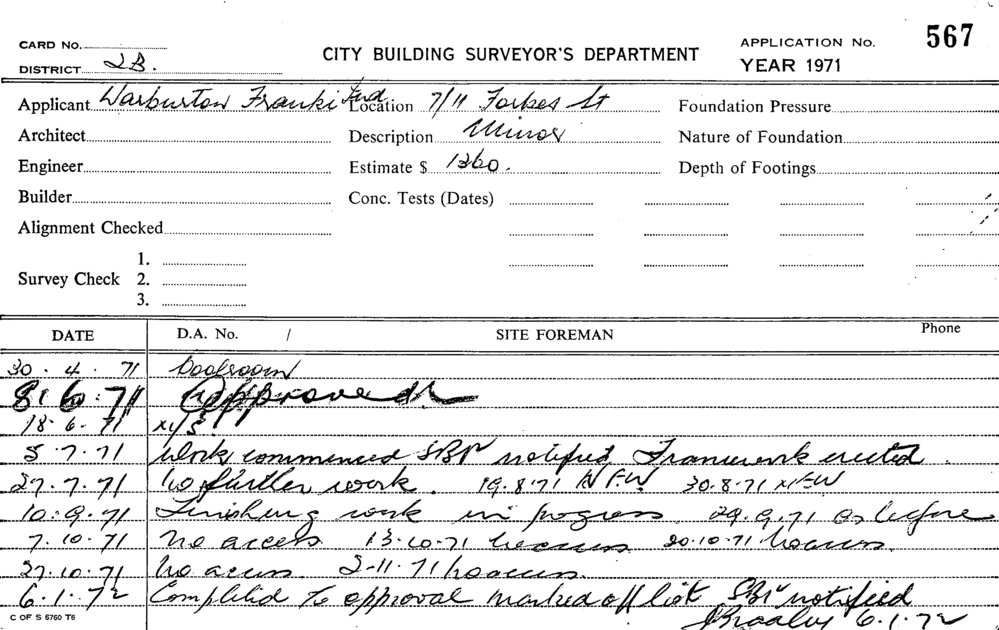 CARD No. CITY BUILDING SURVEYOR'S DEPARTMENT APPLICATION No. 567
DISTRICT 2B. YEAR 1971
Applicant Warburton Franki Location 7/11 Forbes St Foundation Pressure
Architect Description Minor Nature of Foundation
Engineer Estimate $ 1360. Depth of Footings
Builder Conc. Tests (Dates)
Alignment Checked
1.
Survey Check 2.
3.
DATE D.A. No. / SITE FOREMAN Phone
30.4.71
8.6.71 Approved
18.6.71 N/S
5.7.71 Work commenced SBI notified Framework erected.
27.7.71 No further work. 19.8.71 NFW 30.8.71 NFW
10.9.71 Finishing work in progress 29.9.71 As before
7.10.71 No access 13.10.71 No access 20.10.71 No access.
27.10.71 No access. 2.11.71 No access.
6.1.72 Completed to approval marked off list SBI notified
6.1.72
C OF S 6760 T6